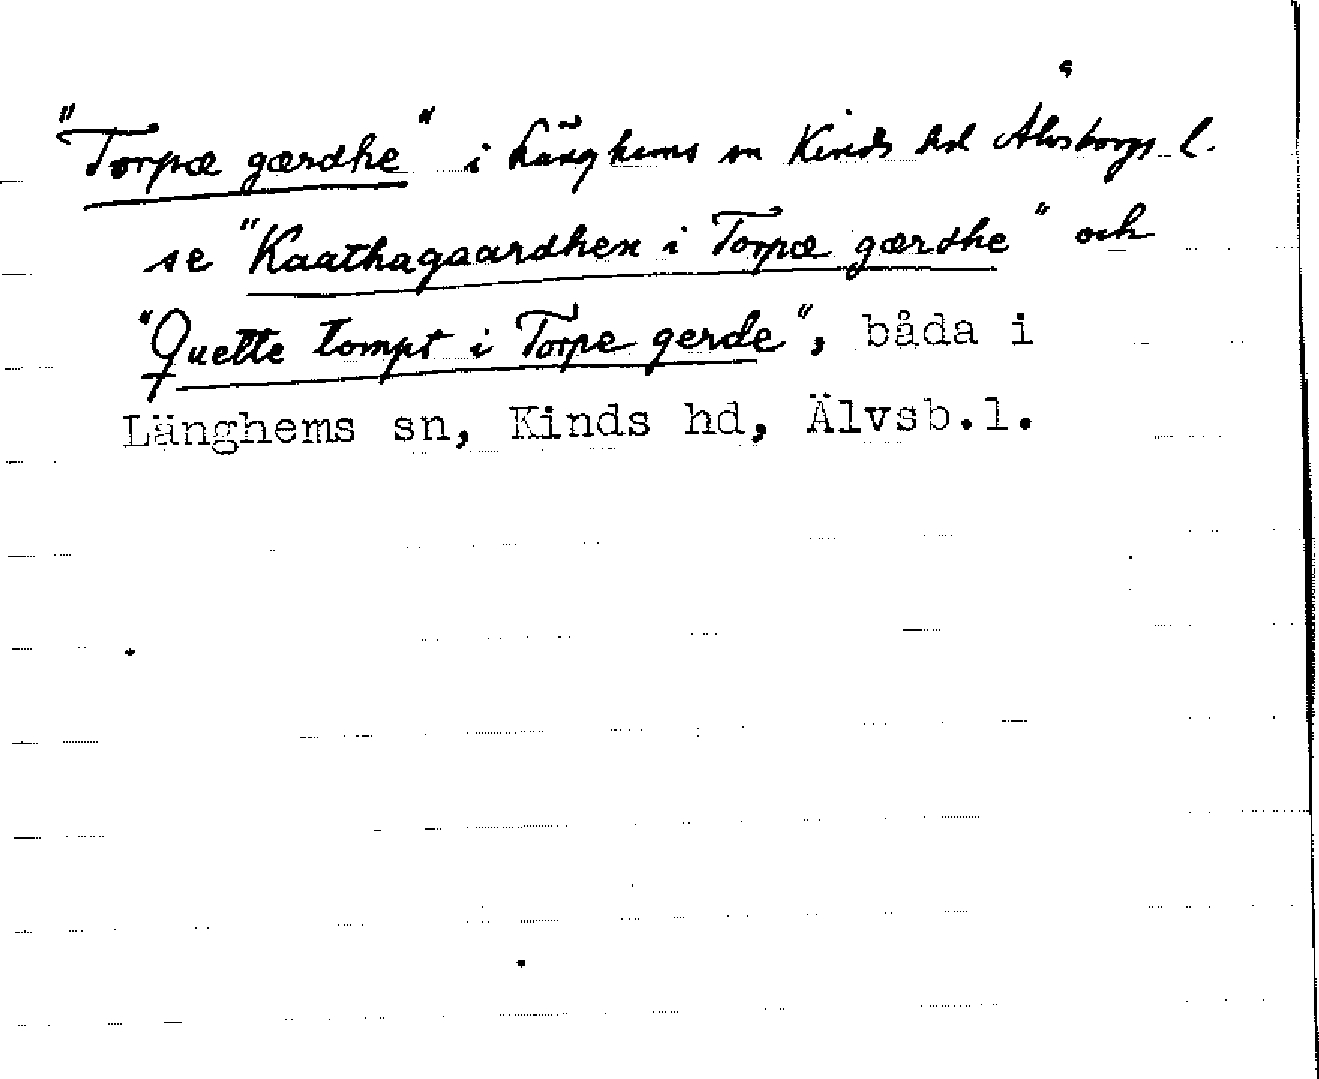 "Torpæ gærdhe" i Länghems sn Kinds hd Älvsborgs l.
se "Kaathagaardhen i Torpæ gærdhe" och
"Quette tompt i Torpe gerde", båda i
Länghems sn, Kinds hd, Älvsb.l.